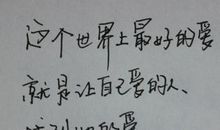 这个世界上最好的爱
就是让自己爱的人、